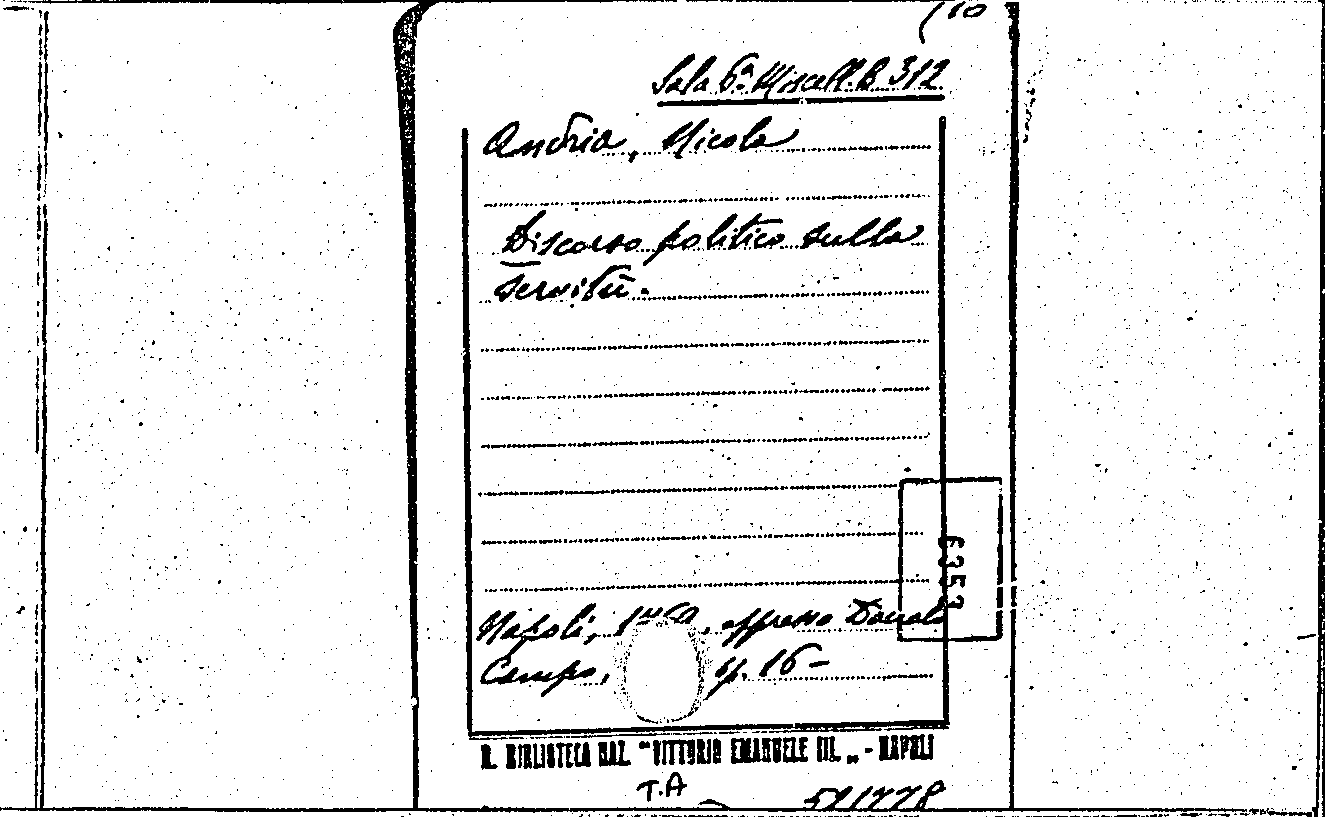 (10
Sala 6ª Miscell. B 312
Andria, Nicola
Discorso politico sulla
servitù.
6353
Napoli, appresso Donato
Campo, p. 16 -
R. BIBLIOTECA NAZ. "VITTORIO EMANUELE III. „ - NAPOLI
T.A